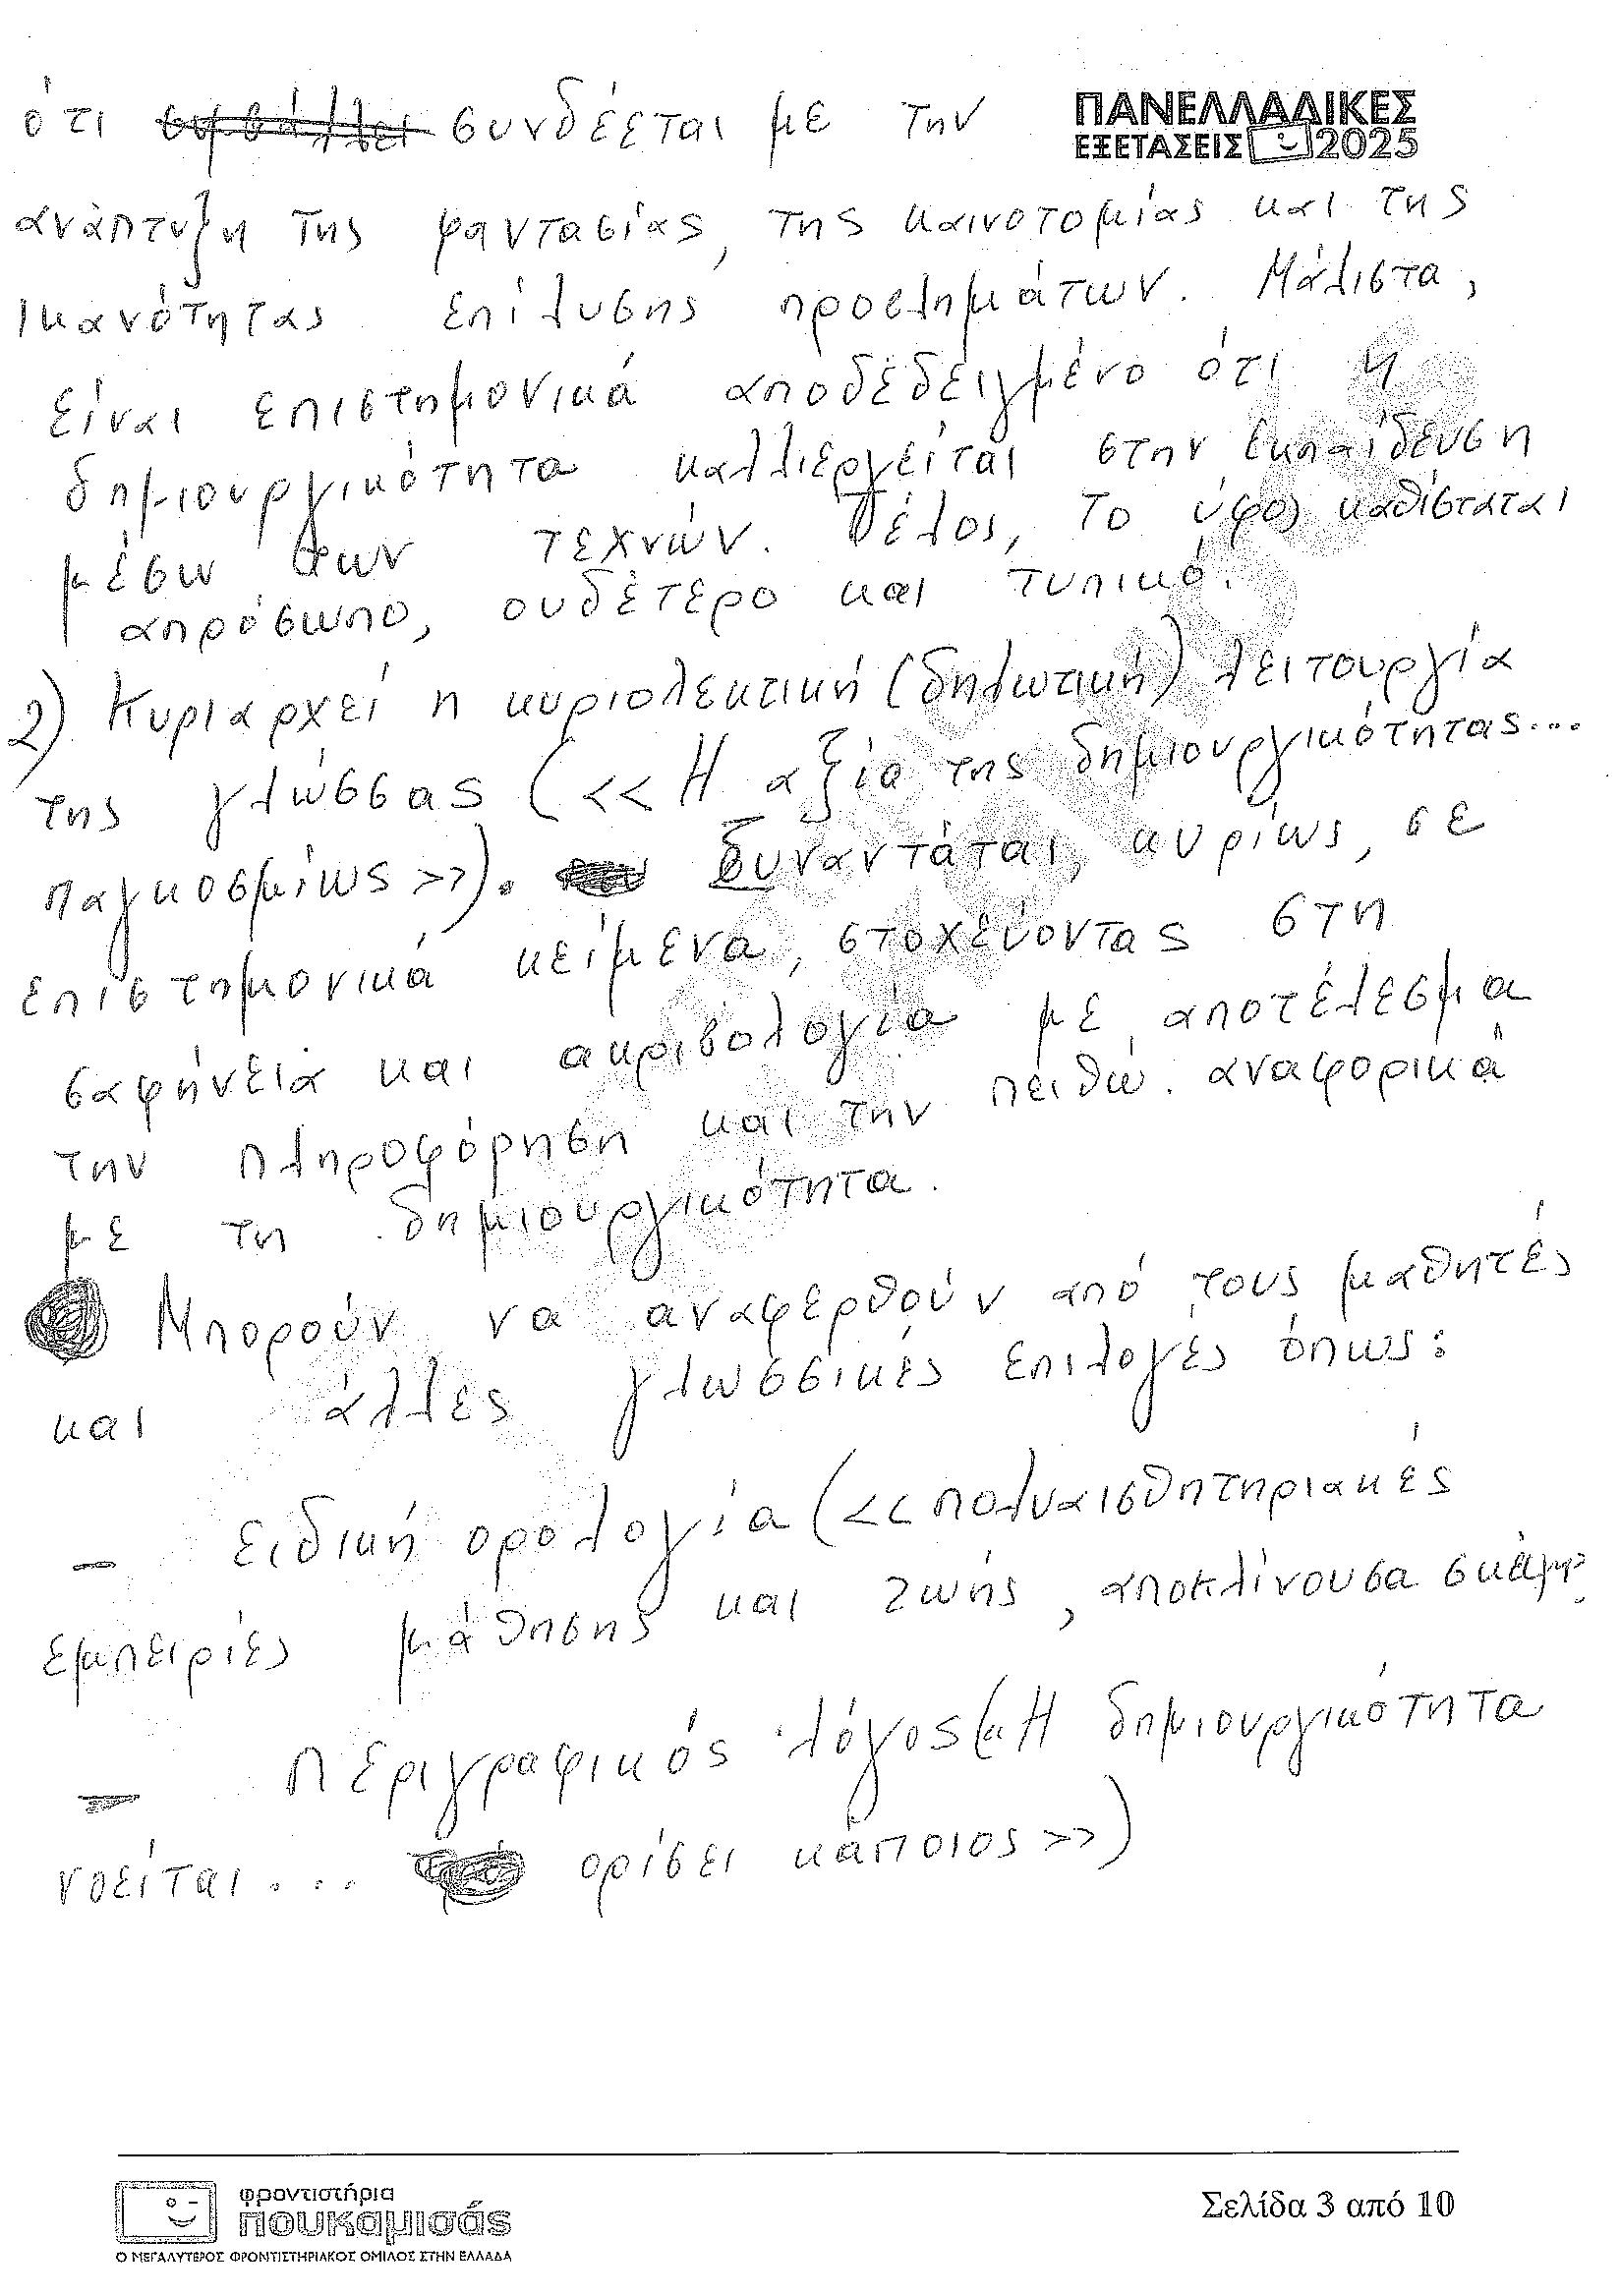 ότι ~~συμβάλλει~~ συνδέεται με την
ΠΑΝΕΛΛΑΔΙΚΕΣ
ΕΞΕΤΑΣΕΙΣ 2025
ανάπτυξη της φαντασίας, της καινοτομίας και της
ικανότητας επίλυσης προβλημάτων. Μάλιστα,
είναι επιστημονικά αποδεδειγμένο ότι η
δημιουργικότητα καλλιεργείται στην εκπαίδευση
μέσω των τεχνών. Τέλος, το ύφος καθίσταται
απρόσωπο, ουδέτερο και τυπικό.
2) Κυριαρχεί η κυριολεκτική (δηλωτική) λειτουργία
της γλώσσας (<<Η αξία της δημιουργικότητας...
παγκοσμίως>>). Συναντάται, κυρίως, σε
επιστημονικά κείμενα, στοχεύοντας στη
σαφήνεια και ακριβολογία με αποτέλεσμα
την πληροφόρηση και την πειθώ. αναφορικά
με τη δημιουργικότητα.
Μπορούν να αναφερθούν από τους μαθητές
και άλλες γλωσσικές επιλογές όπως:
- ειδική ορολογία (<<πολυαισθητηριακές
εμπειρίες μάθησης και ζωής, αποκλίνουσα
- περιγραφικός λόγος («Η δημιουργικότητα
νοείται... ορίσει κάποιος>>)
φροντιστήρια
πουκαμισάς
Ο ΜΕΓΑΛΥΤΕΡΟΣ ΦΡΟΝΤΙΣΤΗΡΙΑΚΟΣ ΟΜΙΛΟΣ ΣΤΗΝ ΕΛΛΑΔΑ
Σελίδα 3 από 10